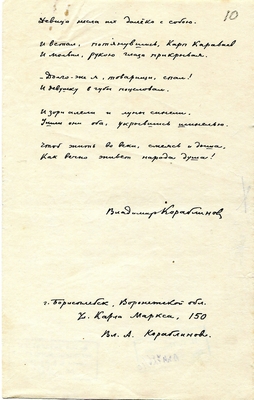 10
Девица несла не далёко с собою.
И встал, потянувшись, Карп Караваев
И молвил, рукою глаза прикрывая.
„Долго-ж я, товарищи, спал!
И девушку в губы поцеловал.
И зори алели и луны синели.
Ушли они оба, укрывшись шинелью.
Чтоб жить во веки, смеясь и дыша,
Как вечно живет народа душа!
Владимир Кораблинов
г. Борисоглебск, Воронежской обл.
Ул. Карла Маркса, 150
Вл. А. Кораблинов.